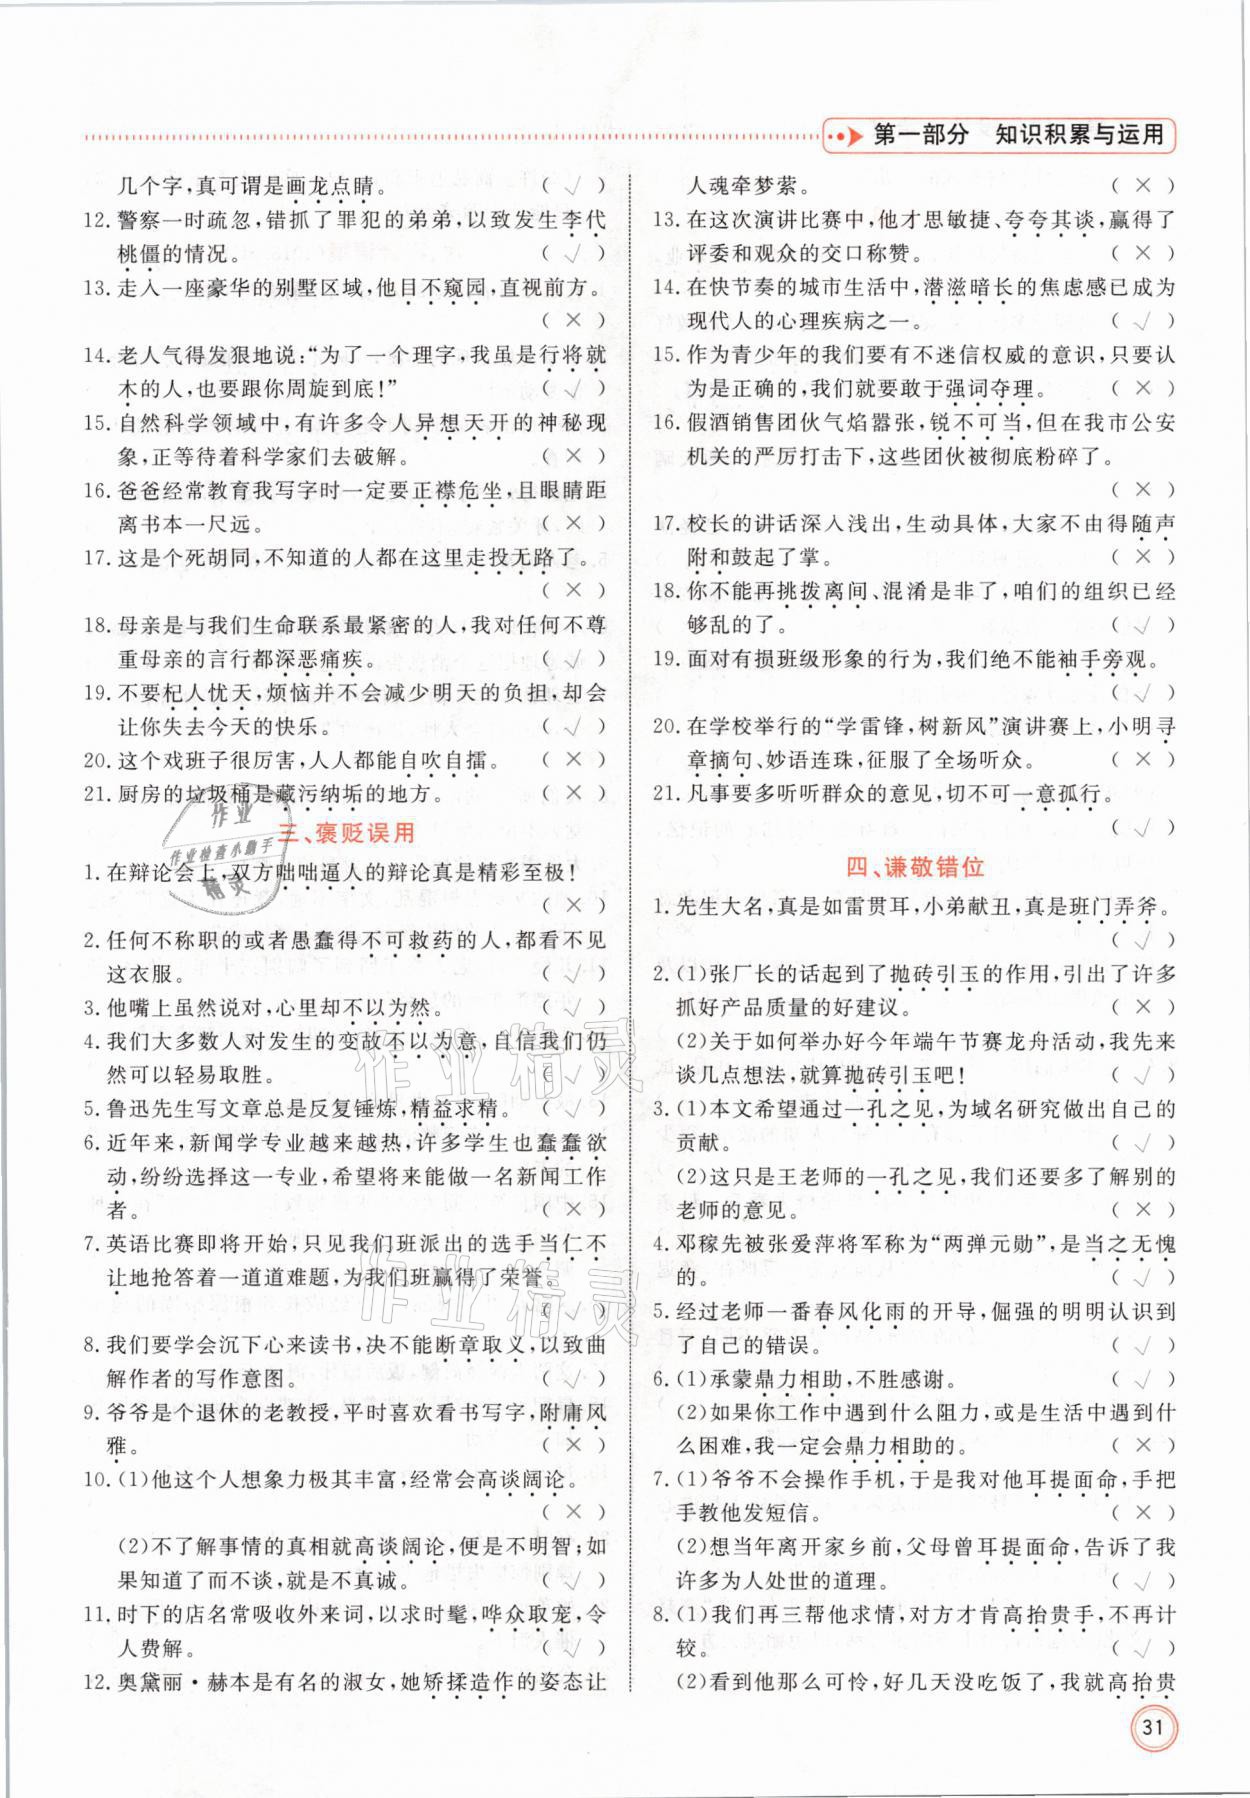 第一部分 知识积累与运用
几个字,真可谓是画龙点睛。 ( √ )
12. 警察一时疏忽,错抓了罪犯的弟弟,以致发生李代
桃僵的情况。 ( √ )
13. 走入一座豪华的别墅区域,他目不窥园,直视前方。
( × )
14. 老人气得发狠地说:“为了一个理字,我虽是行将就
木的人,也要跟你周旋到底!” ( √ )
15. 自然科学领域中,有许多令人异想天开的神秘现
象,正等待着科学家们去破解。 ( × )
16. 爸爸经常教育我写字时一定要正襟危坐,且眼睛距
离书本一尺远。 ( × )
17. 这是个死胡同,不知道的人都在这里走投无路了。
( × )
18. 母亲是与我们生命联系最紧密的人,我对任何不尊
重母亲的言行都深恶痛疾。 ( √ )
19. 不要杞人忧天,烦恼并不会减少明天的负担,却会
让你失去今天的快乐。 ( √ )
20. 这个戏班子很厉害,人人都能自吹自擂。 ( × )
21. 厨房的垃圾桶是藏污纳垢的地方。 ( × )
三、褒贬误用
1. 在辩论会上,双方咄咄逼人的辩论真是精彩至极!
( × )
2. 任何不称职的或者愚蠢得不可救药的人,都看不见
这衣服。 ( √ )
3. 他嘴上虽然说对,心里却不以为然。 ( √ )
4. 我们大多数人对发生的变故不以为意,自信我们仍
然可以轻易取胜。 ( √ )
5. 鲁迅先生写文章总是反复锤炼,精益求精。 ( √ )
6. 近年来,新闻学专业越来越热,许多学生也蠢蠢欲
动,纷纷选择这一专业,希望将来能做一名新闻工作
者。 ( × )
7. 英语比赛即将开始,只见我们班派出的选手当仁不
让地抢答着一道道难题,为我们班赢得了荣誉。
( √ )
8. 我们要学会沉下心来读书,决不能断章取义,以致曲
解作者的写作意图。 ( √ )
9. 爷爷是个退休的老教授,平时喜欢看书写字,附庸风
雅。 ( × )
10. (1)他这个人想象力极其丰富,经常会高谈阔论。
( × )
(2)不了解事情的真相就高谈阔论,便是不明智;如
果知道了而不谈,就是不真诚。 ( √ )
11. 时下的店名常吸收外来词,以求时髦,哗众取宠,令
人费解。 ( √ )
12. 奥黛丽·赫本是有名的淑女,她矫揉造作的姿态让
人魂牵梦萦。 ( × )
13. 在这次演讲比赛中,他才思敏捷、夸夸其谈,赢得了
评委和观众的交口称赞。 ( × )
14. 在快节奏的城市生活中,潜滋暗长的焦虑感已成为
现代人的心理疾病之一。 ( √ )
15. 作为青少年的我们要有不迷信权威的意识,只要认
为是正确的,我们就要敢于强词夺理。 ( × )
16. 假酒销售团伙气焰嚣张,锐不可当,但在我市公安
机关的严厉打击下,这些团伙被彻底粉碎了。
( × )
17. 校长的讲话深入浅出,生动具体,大家不由得随声
附和鼓起了掌。 ( × )
18. 你不能再挑拨离间、混淆是非了,咱们的组织已经
够乱的了。 ( √ )
19. 面对有损班级形象的行为,我们绝不能袖手旁观。
( √ )
20. 在学校举行的“学雷锋,树新风”演讲赛上,小明寻
章摘句、妙语连珠,征服了全场听众。 ( × )
21. 凡事要多听听群众的意见,切不可一意孤行。
( √ )
四、谦敬错位
1. 先生大名,真是如雷贯耳,小弟献丑,真是班门弄斧。
( √ )
2. (1)张厂长的话起到了抛砖引玉的作用,引出了许多
抓好产品质量的好建议。 ( × )
(2)关于如何举办好今年端午节赛龙舟活动,我先来
谈几点想法,就算抛砖引玉吧! ( √ )
3. (1)本文希望通过一孔之见,为域名研究做出自己的
贡献。 ( √ )
(2)这只是王老师的一孔之见,我们还要多了解别的
老师的意见。 ( × )
4. 邓稼先被张爱萍将军称为“两弹元勋”,是当之无愧
的。 ( √ )
5. 经过老师一番春风化雨的开导,倔强的明明认识到
了自己的错误。 ( √ )
6. (1)承蒙鼎力相助,不胜感谢。 ( √ )
(2)如果你工作中遇到什么阻力,或是生活中遇到什
么困难,我一定会鼎力相助的。 ( × )
7. (1)爷爷不会操作手机,于是我对他耳提面命,手把
手教他发短信。 ( × )
(2)想当年离开家乡前,父母曾耳提面命,告诉了我
许多为人处世的道理。 ( √ )
8. (1)我们再三帮他求情,对方才肯高抬贵手,不再计
较。 ( √ )
(2)看到他那么可怜,好几天没吃饭了,我就高抬贵
31
作业
作业检查小助手
精灵
作业精灵
作业精灵